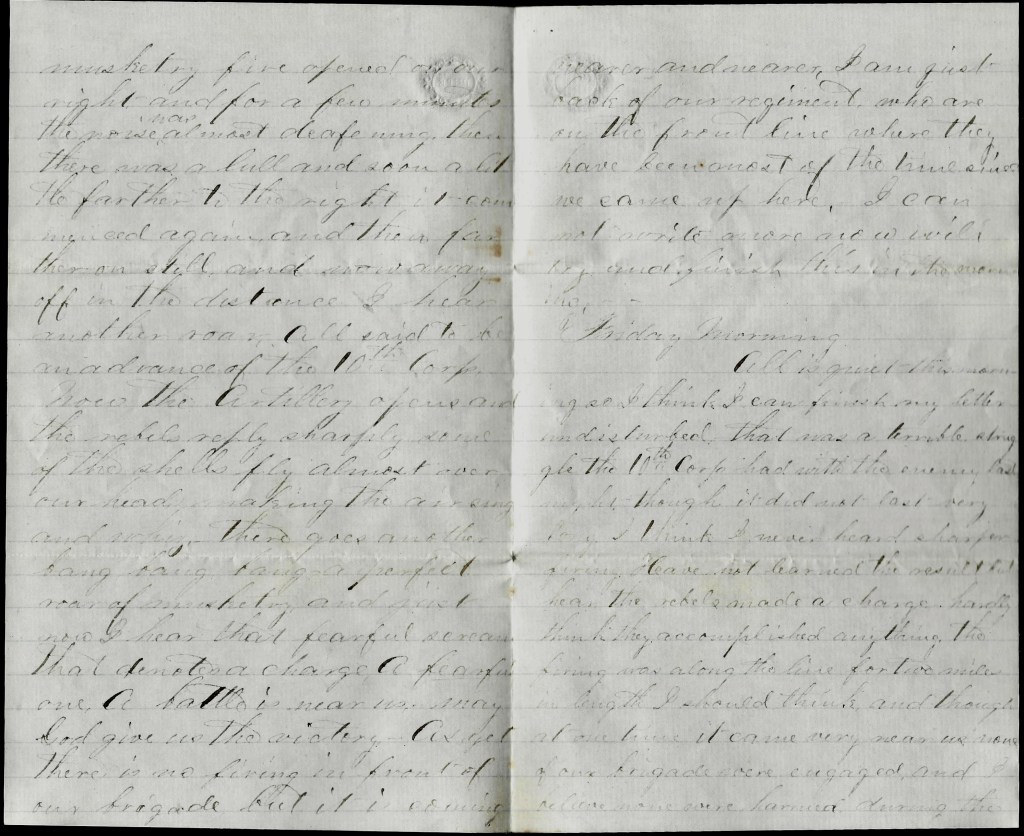 musketry fire opened on our
right and for a few minutes
the noise was almost deafening, then
there was a lull and soon a lit
tle farther to the right it com
menced again, and then far
ther on still, and now away
off in the distance I hear
another roar. All said to be
an advance of the 10th Corp.
Now the Artillery opens and
the rebels reply sharply some
of the shells fly almost over
our heads, making the air sing
and ring. There goes another
bang bang bang, a perfect
roar of musketry and just
now I hear that fearful scream
that denotes a charge. A fearful
one. A battle is near us. may
God give us the victory. As yet
there is no firing in front of
our brigade but it is coming
nearer and nearer, I am just
back of our regiment, who are
on the front line where they
have been most of the time since
we came up here. I can
not write more now will
try and finish this in the morn
ing.
Friday Morning
All is quiet this morn
ing so I think I can finish my letter
undisturbed. That was a terrible strug
gle the 10th Corp had with the enemy last
night though it did not last very
long I think I never heard sharper
firing. Have not learned the result but
hear the rebels made a charge. hardly
think they accomplished anything. The
firing was along the line for two miles
in length I should think, and though
at one time it came very near us none
of our brigade were engaged, and I
believe none were harmed during the